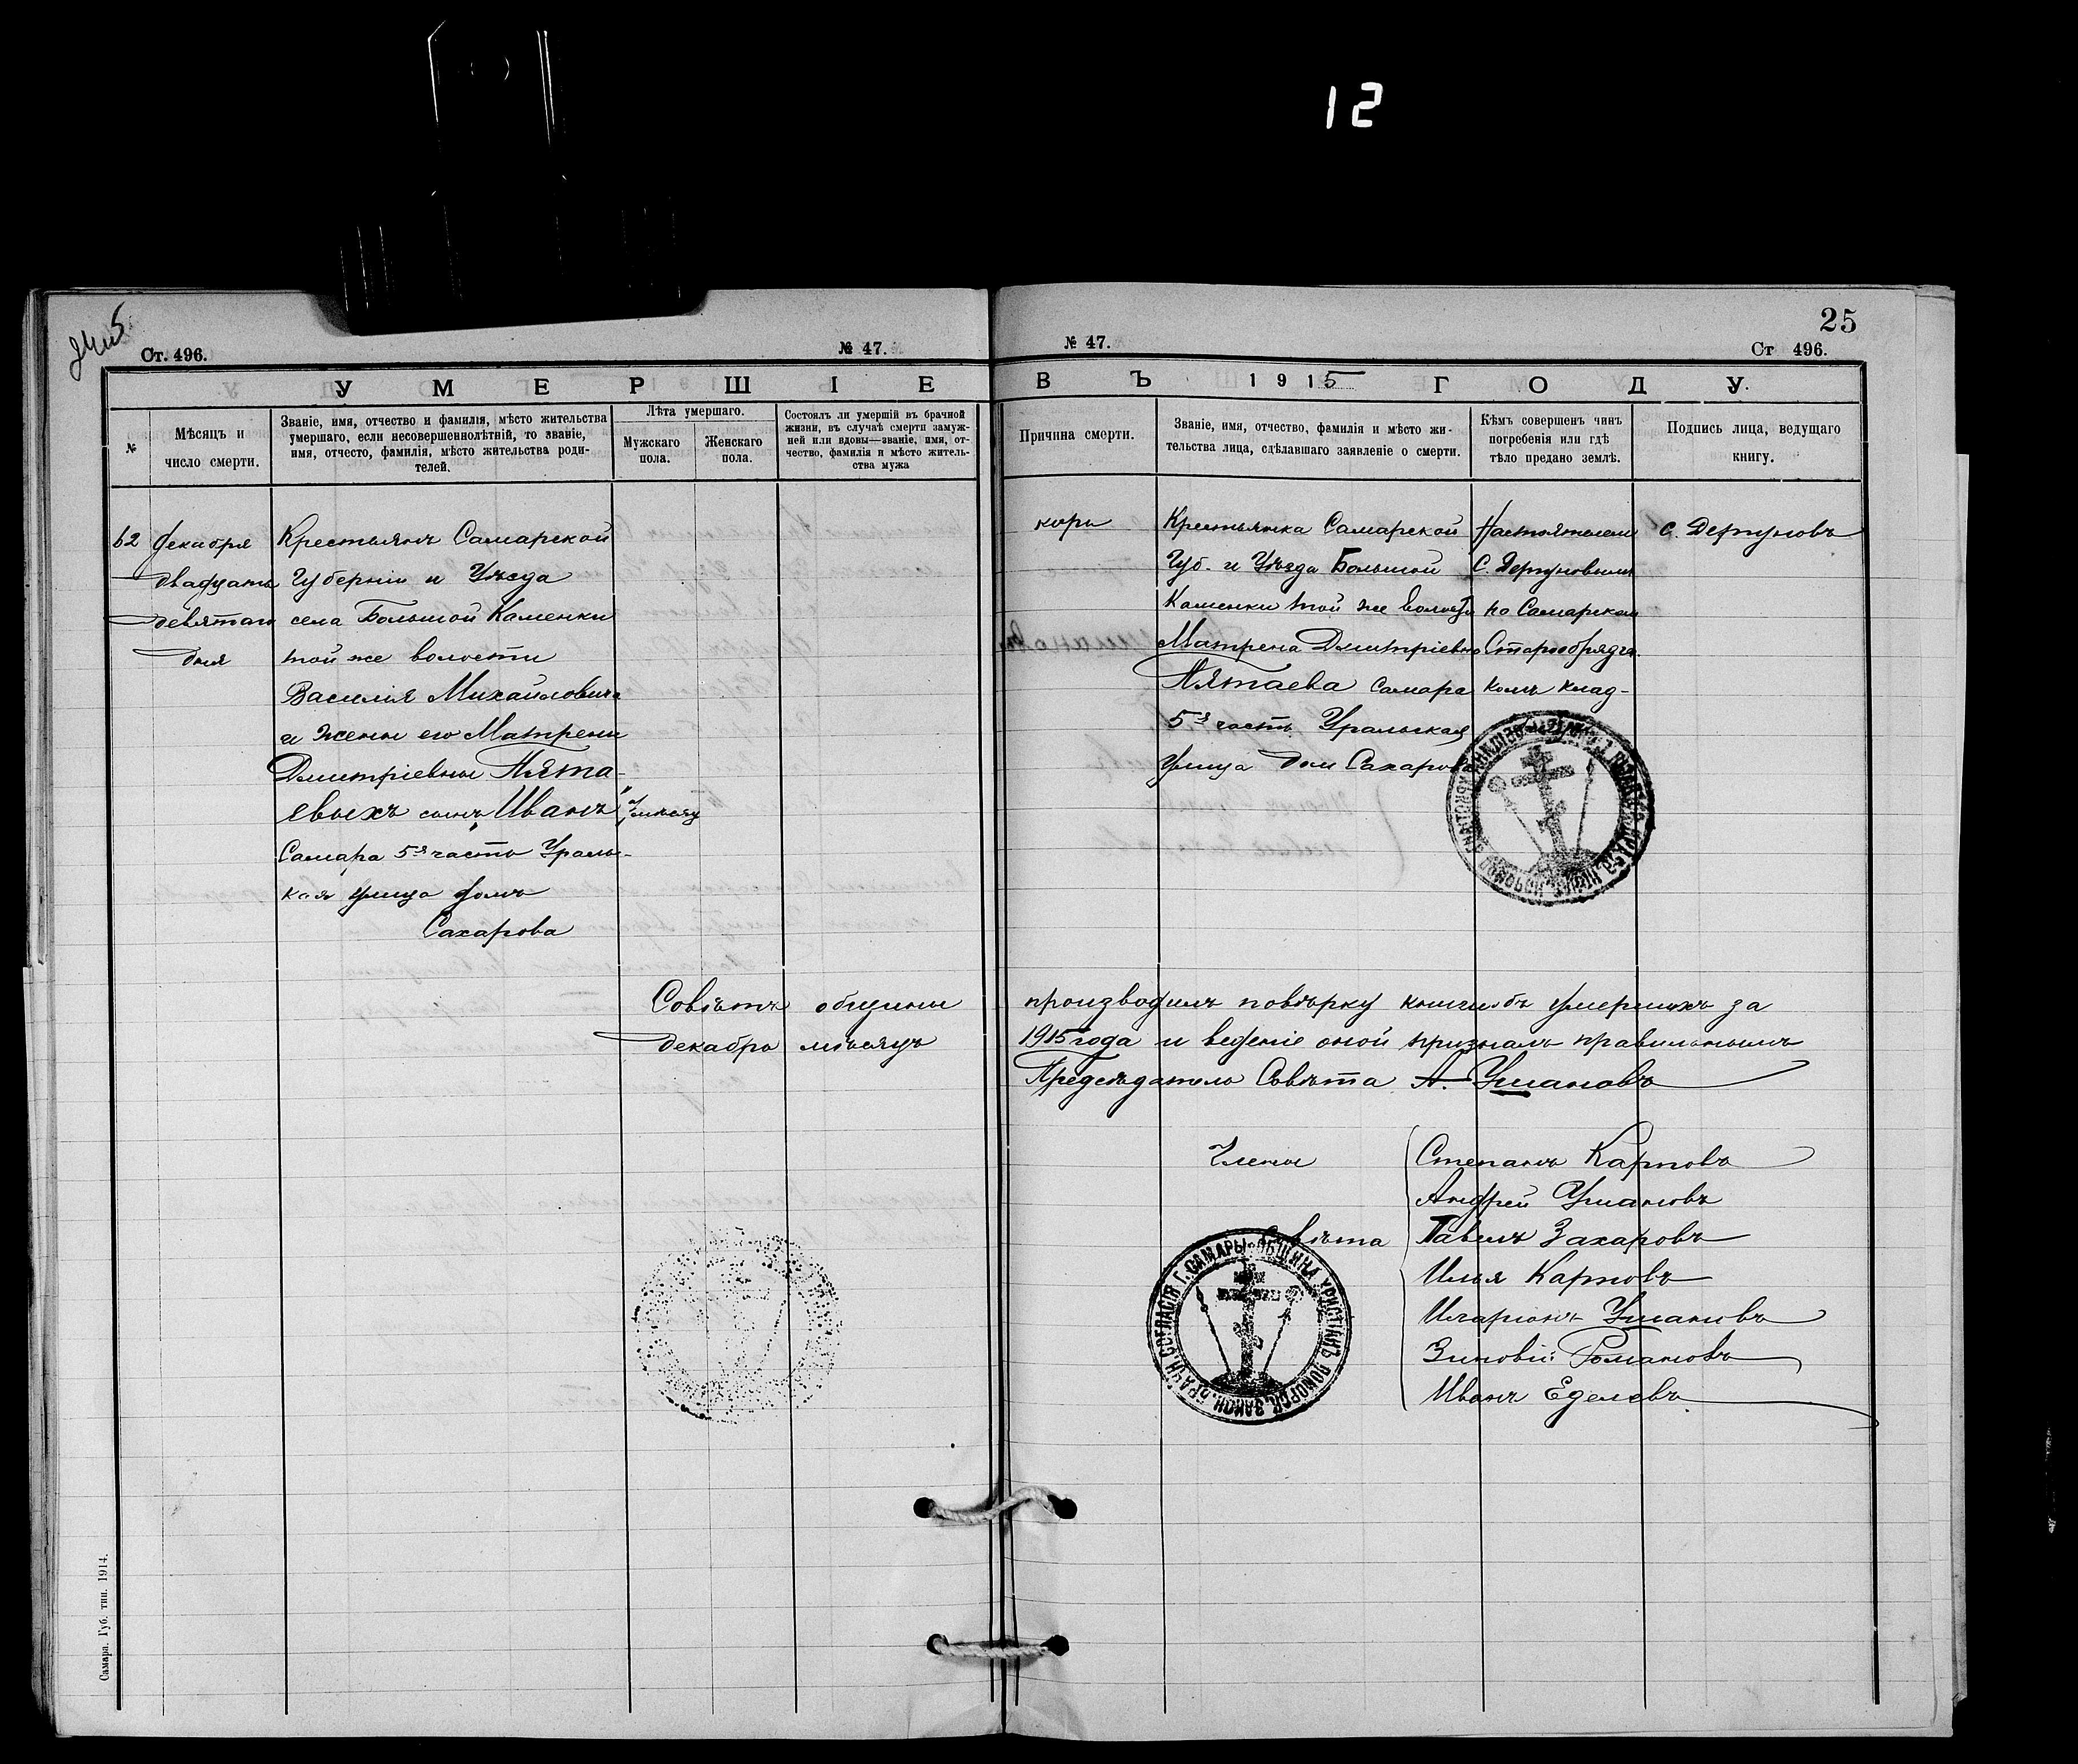 12
25
Ст. 496.
№ 47.
№ 47.
Ст 496.
УМЕРШІЕ
ВЪ 1915 ГОДУ.
№
Мѣсяцъ и
число смерти.
Званіе, имя, отчество и фамилія, мѣсто жительства
умершаго, если несовершеннолѣтній, то званіе,
имя, отчесто, фамилія, мѣсто жительства роди-
телей.
Лѣта умершаго.
Мужскаго
пола.
Женскаго
пола.
Состоялъ ли умершій въ брачной
жизни, въ случаѣ смерти замуж-
ней или вдовы—званіе, имя, от-
чество, фамилія и мѣсто житель-
ства мужа
Причина смерти.
Званіе, имя, отчество, фамилія и мѣсто жи-
тельства лица, сдѣлавшаго заявленіе о смерти.
Кѣмъ совершенъ чинъ
погребенія или гдѣ
тѣло предано землѣ.
Подпись лица, ведущаго
книгу.
62
декабря
двадцать
девятаго
дня
Крестьянъ Самарской
Губерніи и Уѣзда
села Большой Каменки
той же волости
Василія Михайловича
и жены его Матрены
Дмитріевны Пята-
евыхъ сынъ "Иванъ"
Самара 5я часть Ураль-
кая улица домъ
Сахарова
корь
Крестьянка Самарской
Губ. и Уѣзда Большой
Каменки той же волости
Матрена Дмитріевна
Пятаева Самара
5я часть Уральская
Улица дом Сахарова
Настоятелем
С. Дертуновым
на Самарском
Старообрядче
комъ клад-
С. Дертуновъ
Совѣтъ общины производилъ повѣрку книги объ умершихъ за
декабрь мѣсяцъ 1915 года и веденіе оной призналъ правильнымъ
Предсѣдатель Совѣта А. Ушановъ
Члены
Совѣта
Степанъ Карповъ
Андрей Ушановъ
Павелъ Захаровъ
Илья Карповъ
Иларионъ Ушановъ
Зиновій Романовъ
Иванъ Еделевъ
ОБЩИНА ХРИСТІАНЪ ПОМОРСК. ЗАКОН. БРАЧН. СОГЛАСІЯ Г. САМАРЫ
Самара. Губ. тип. 1914.